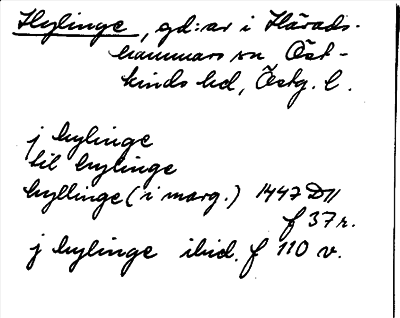 Hylinge, gd:ar i Härads-
hammars sn Öst-
kinds hd, Östg. l.
j hylinge
til hylinge
hyllinge (i marg.) 1447 D11
f 37 r.
j hylinge ibid. f 110 v.